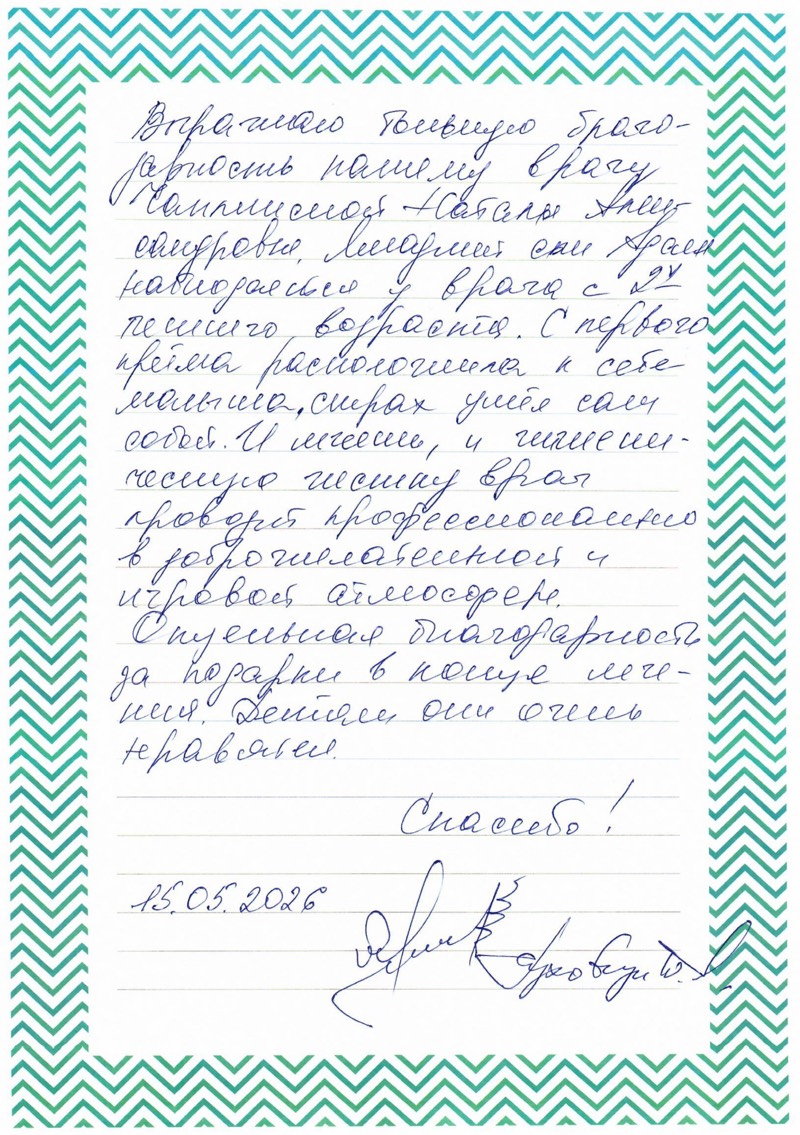 Выражаю большую благо-
дарность нашему врачу
Наталье Алек-
сандровне. сын
наблюдается у врача с 2х
летнего возраста. С первого
приёма расположила к себе
малыша, страх ушёл сам
собой. И лечение, и гигиени-
ческую чистку врач
проводит профессионально
в доброжелательной и
игровой атмосфере.
Отдельная благодарность
за подарки в конце лече-
ния. Детям они очень
нравятся.
Спасибо!
15.05.2026